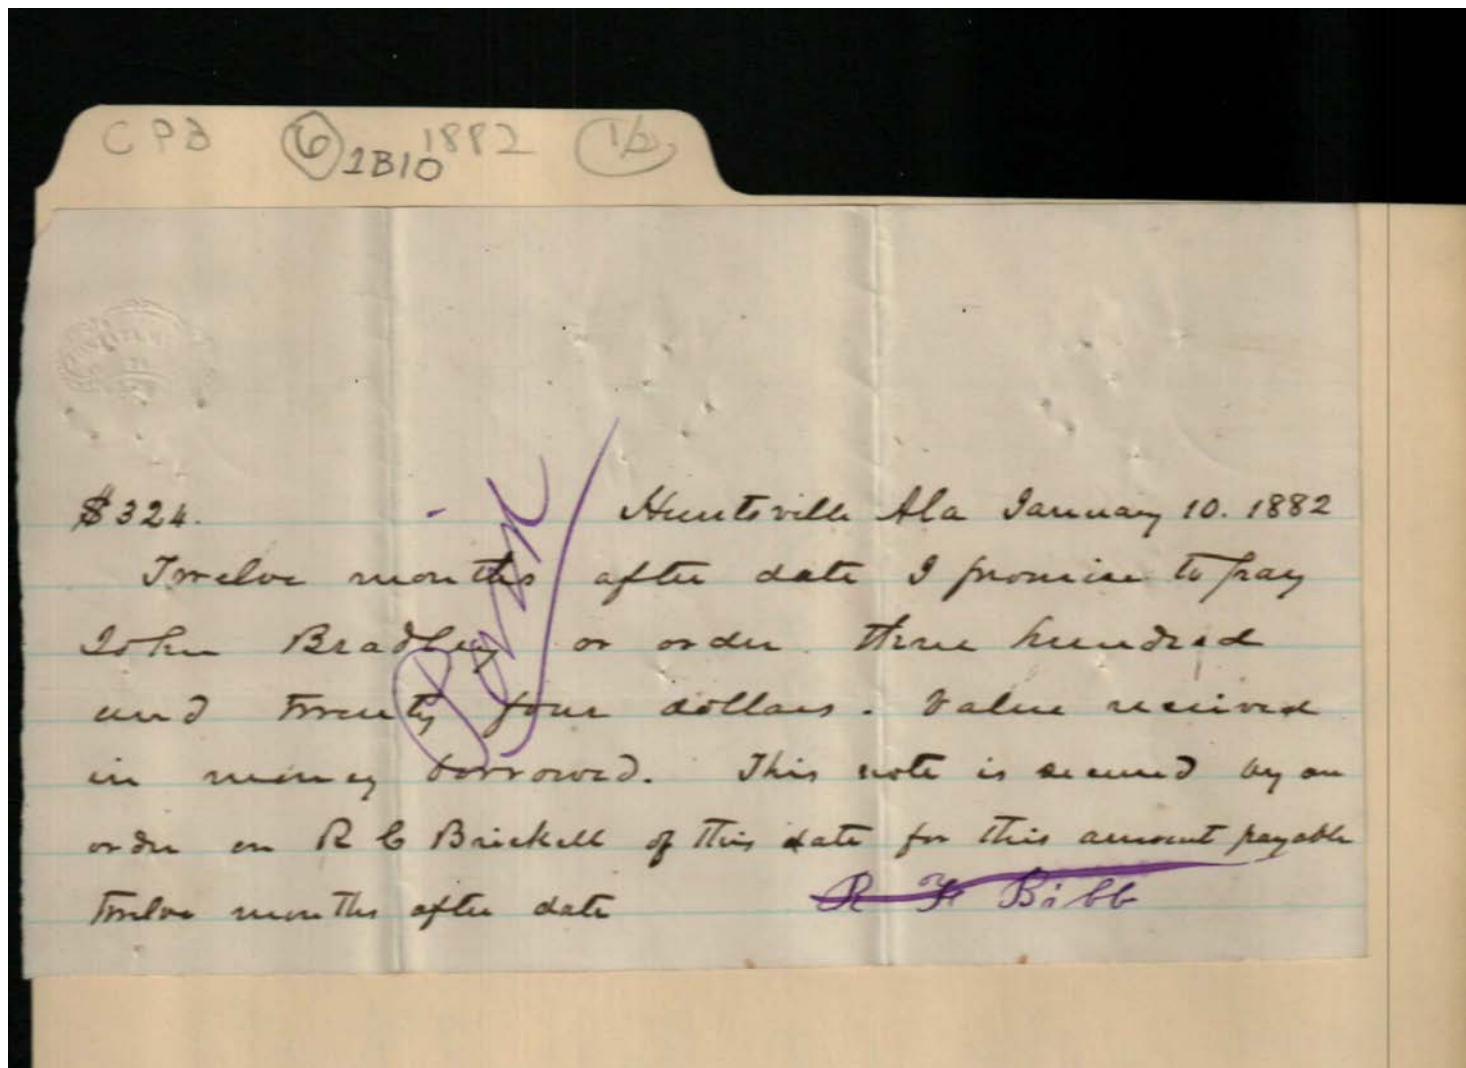 CPB 6 1882 1/2
1B10
$324. Huntsville Ala January 10. 1882
Twelve months after date I promise to pay
John Bradley or order three hundred
and twenty four dollars. Value received
in money borrowed. This note is secured by an
order on R C Brickell of this date for this amount payable
twelve months after date R Bibb
Paid